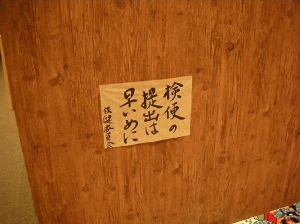 検便の
提出は
早いめに
保健委員会